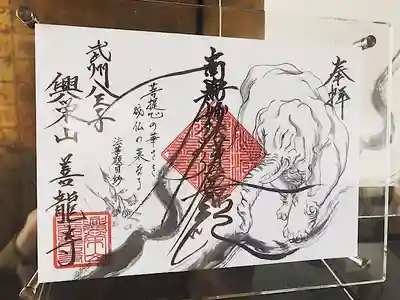 奉拝
南無妙法蓮華経
菩提心の華さき
妙仏の菓なる
法華題目鈔
武州八王子
興栄山 善龍寺